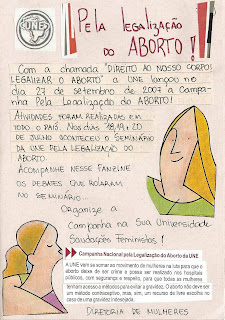 UNE
PELA LEGALIZAÇÃO
DO ABORTO!
COM A CHAMADA "DIREITO AO NOSSO CORPO!
LEGALIZAR O ABORTO" A UNE LANÇOU NO
DIA 27 DE SETEMBRO DE 2007 A CAMPA-
NHA PELA LEGALIZAÇÃO DO ABORTO!
ATIVIDADES FORAM REALIZADAS EM
TODO O PAÍS. NOS DIAS 18, 19 e 20
DE JULHO ACONTECEU O SEMINÁRIO
DA UNE PELA LEGALIZAÇÃO DO
ABORTO.
ACOMPANHE NESSE FANZINE
OS DEBATES QUE ROLARAM
NO SEMINÁRIO.
ORGANIZE A
CAMPANHA NA SUA UNIVERSIDADE
SAUDAÇÕES FEMINISTAS!
Campanha Nacional pela Legalização do Aborto da UNE
A UNE vem se somar ao movimento de mulheres na luta para que o
aborto deixe de ser crime e possa ser realizado nos hospitais
públicos, com segurança e respeito, para que todas as mulheres
tenham acesso a métodos para evitar a gravidez. O aborto não deve ser
um método contraceptivo, mas, sim, um recurso de livre escolha no
caso de uma gravidez indesejada.
DIRETORIA DE MULHERES